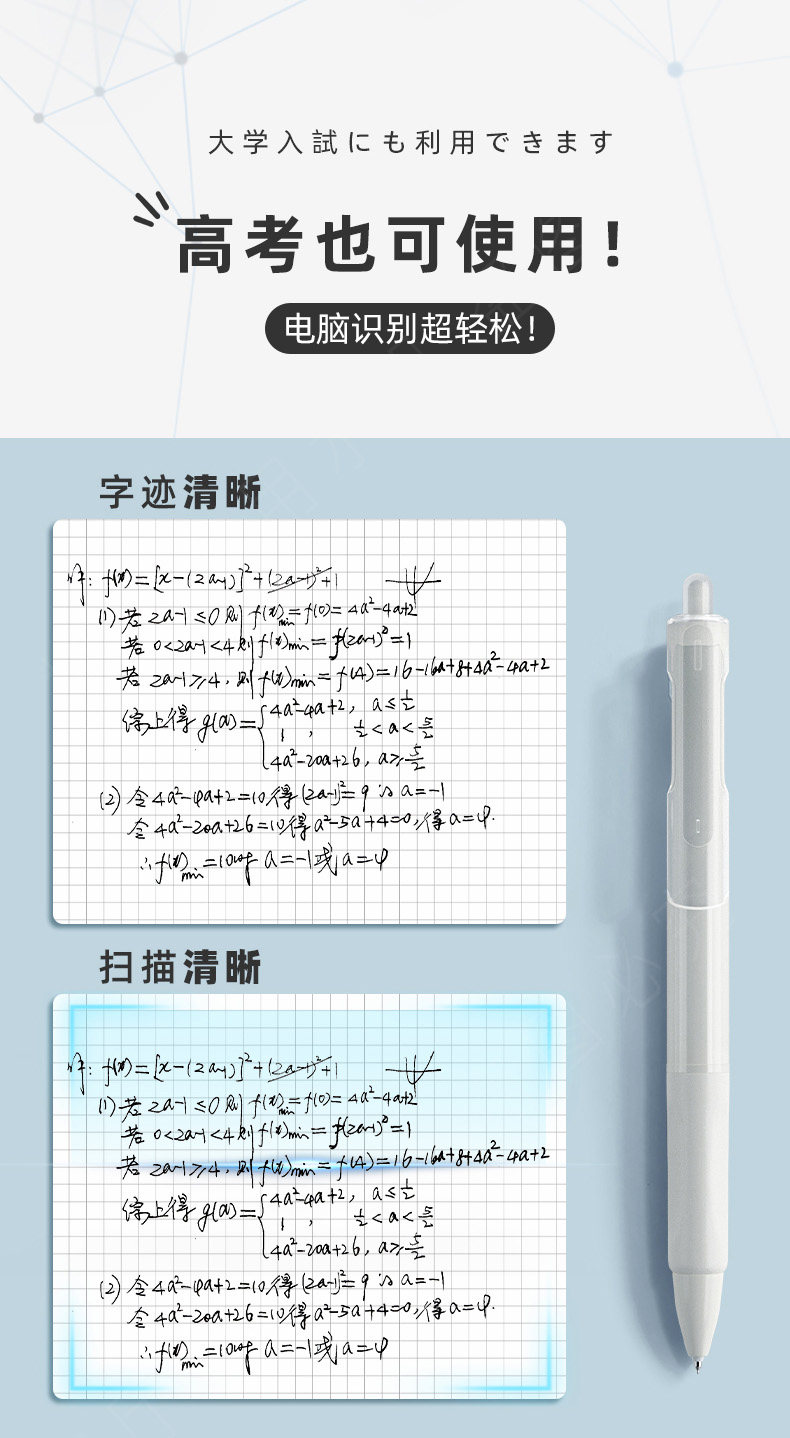 大学入試にも利用できます
高考也可使用!
电脑识别超轻松!
字迹清晰
解: f(x)=[x-(2a-1)]²+(2a-1)²+1
(1) 若 2a-1≤0 则 f(x)min=f(0)=4a²-4a+2
若 0<2a-1<4 则 f(x)min=f(2a-1)=1
若 2a-1≥4, 则 f(x)min=f(4)=16-16a+8+4a²-4a+2
综上得 g(a)={4a²-4a+2, a≤1/2
1, 1/2<a<5/2
4a²-20a+26, a≥5/2
(2) 令 4a²-4a+2=10 得 (2a-1)²=9 ∴ a=-1
令 4a²-20a+26=10 得 a²-5a+4=0, 得 a=4.
∴ f(x)min=10时 a=-1 或 a=4
扫描清晰
解: f(x)=[x-(2a-1)]²+(2a-1)²+1
(1) 若 2a-1≤0 则 f(x)min=f(0)=4a²-4a+2
若 0<2a-1<4 则 f(x)min=f(2a-1)=1
若 2a-1≥4, 则 f(x)min=f(4)=16-16a+8+4a²-4a+2
综上得 g(a)={4a²-4a+2, a≤1/2
1, 1/2<a<5/2
4a²-20a+26, a≥5/2
(2) 令 4a²-4a+2=10 得 (2a-1)²=9 ∴ a=-1
令 4a²-20a+26=10 得 a²-5a+4=0, 得 a=4.
∴ f(x)min=10时 a=-1 或 a=4